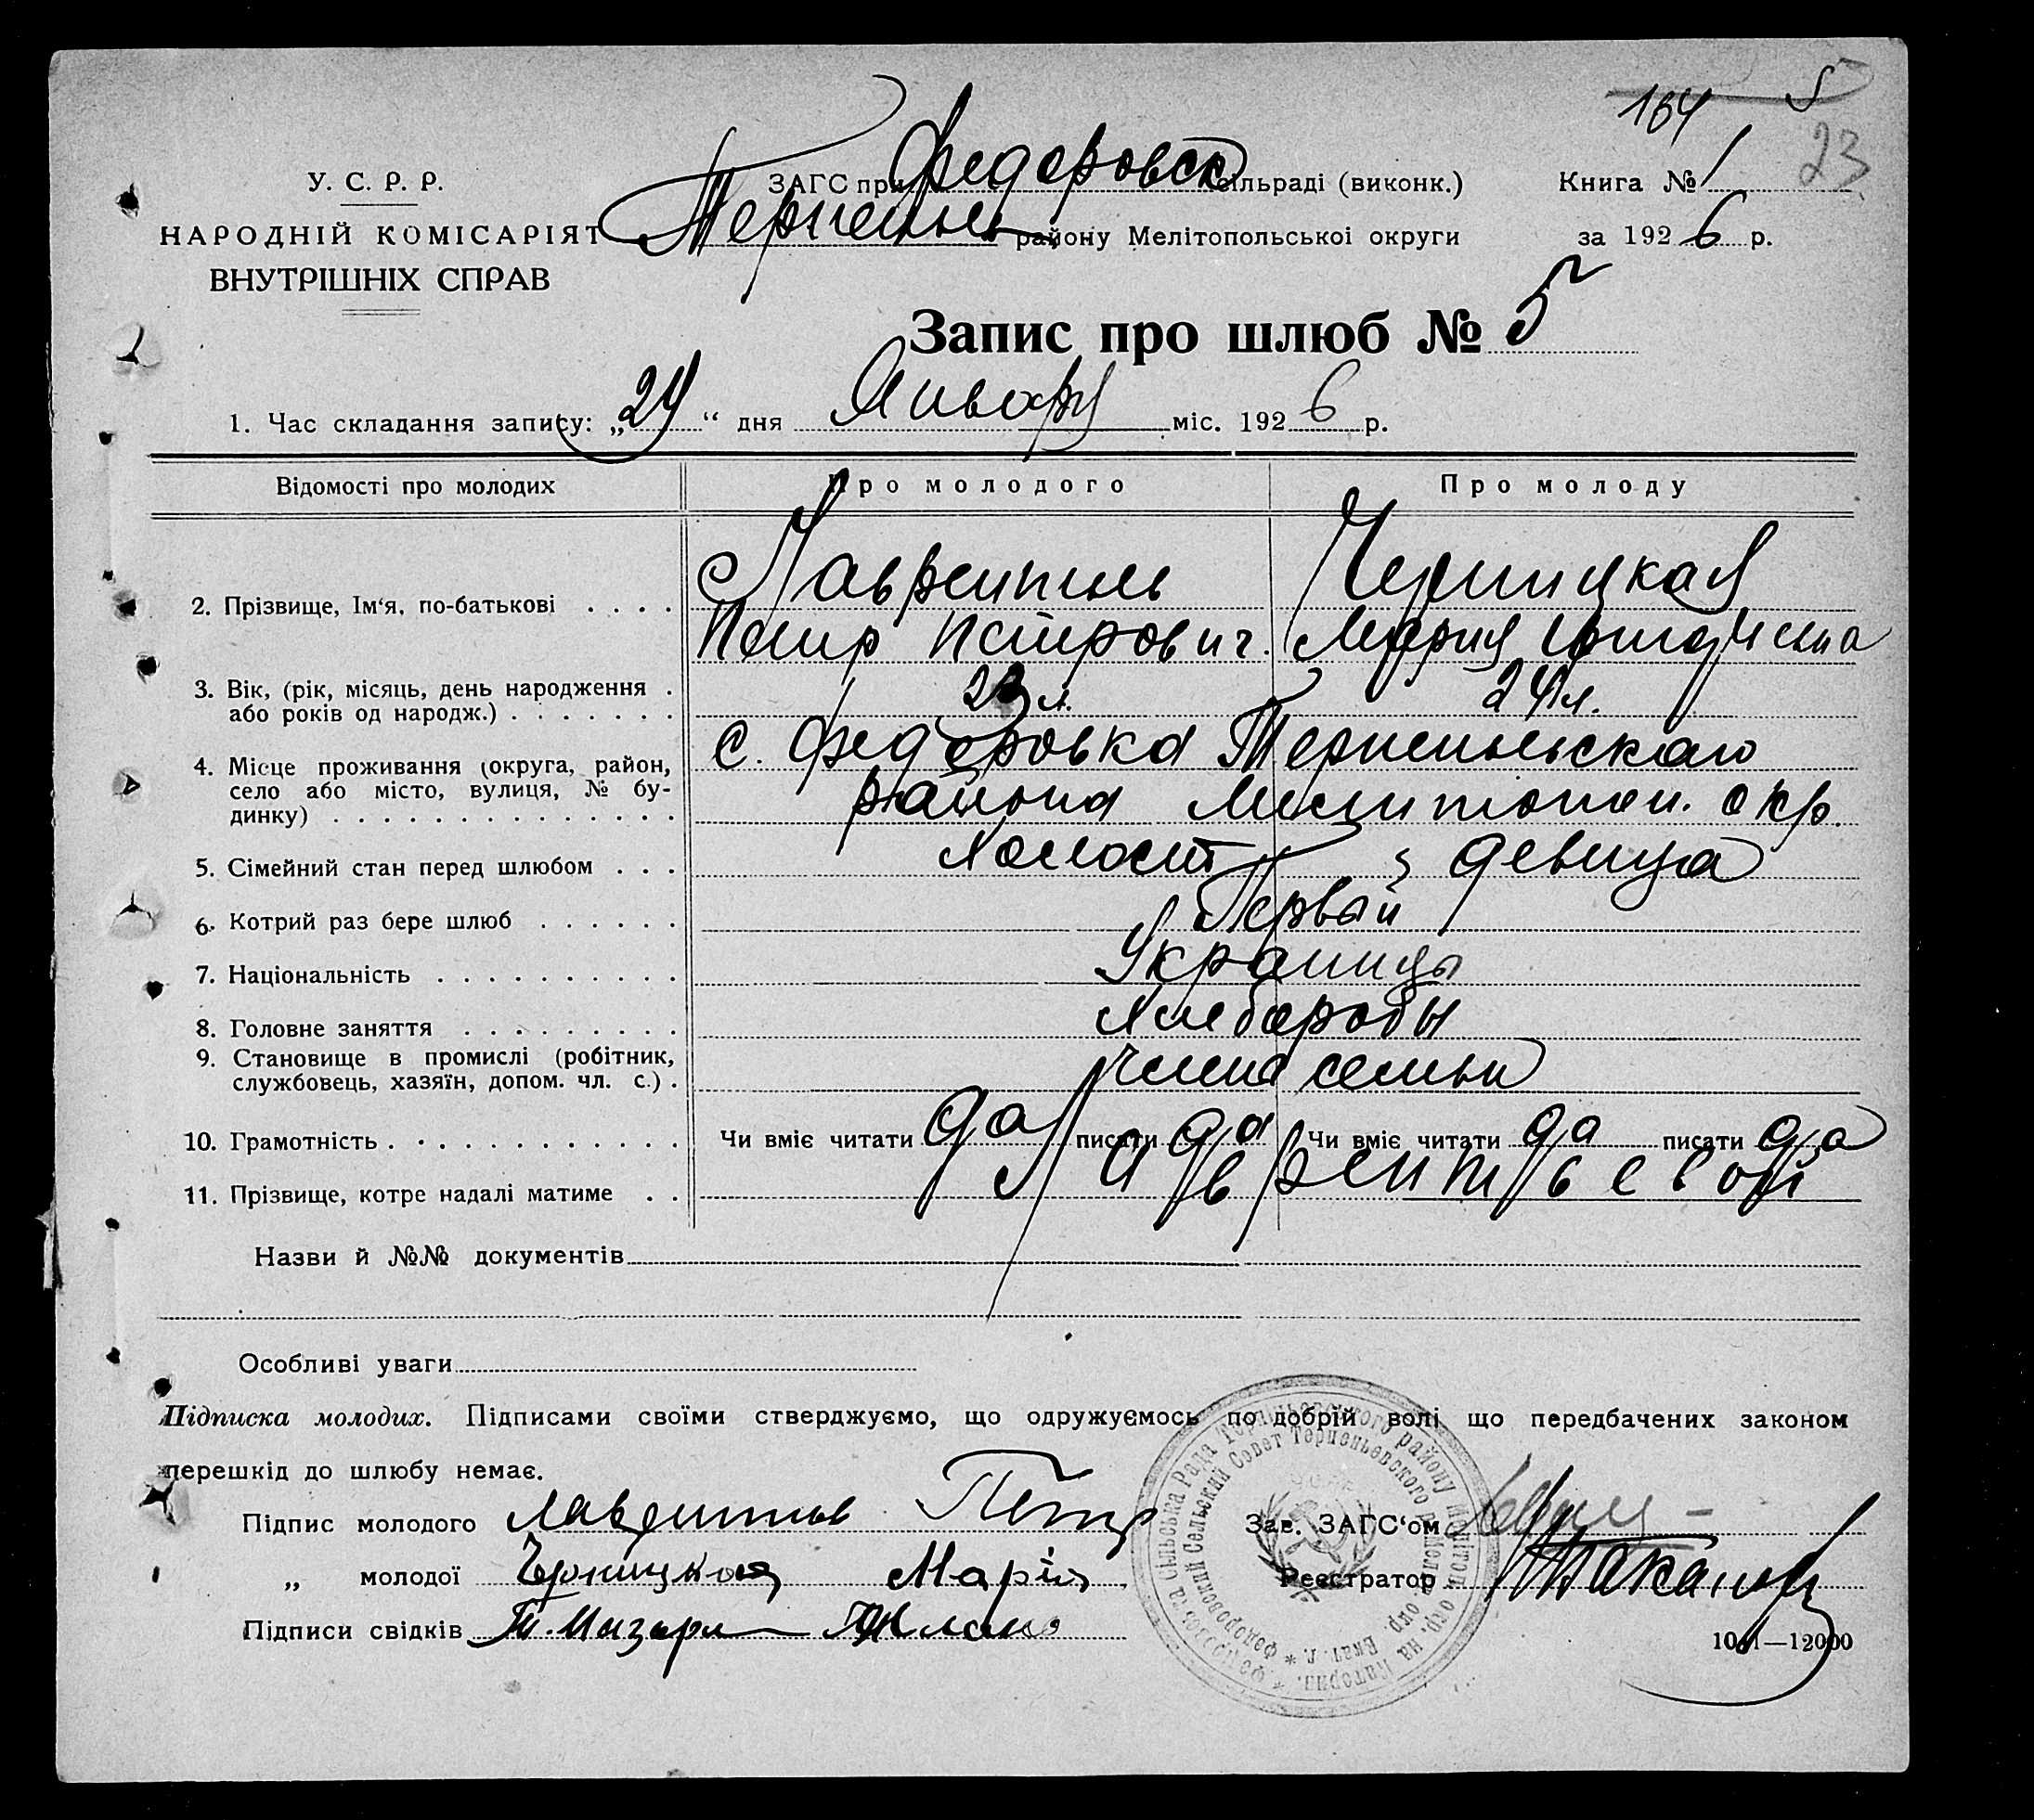 164 5
23
У. С. Р. Р.
НАРОДНІЙ КОМІСАРІЯТ
ВНУТРІШНІХ СПРАВ
ЗАГС при Федоровск сільраді (виконк.)
Терпеньев району Мелітопольської округи
Книга № 1
за 1926 р.
Запис про шлюб № 5
1. Час складання запису: „24“ дня Январу міс. 1926 р.
Відомості про молодих Про молодого Про молоду
2. Прізвище, Ім'я, по-батькові . . . . Лаврентьев Черницкая
Петр Петрович. Мария
3. Вік, (рік, місяць, день народження .
або років од народж.) . . . . . . . 23 л. 24 л.
4. Місце проживання (округа, район,
село або місто, вулиця, № бу-
динку) . . . . . . . . . . . . . .
с. Федоровка Терпеньевскаго
района Мелитопол. окр.
5. Сімейний стан перед шлюбом . . . Холост девица
6. Котрий раз бере шлюб . . . . . . Первый
7. Національність . . . . . . . . . . Украинцы
8. Головне заняття . . . . . . . . . Хлеборобы
9. Становище в промислі (робітник,
службовець, хазяїн, допом. чл. с.) . Члена семьи
10. Грамотність . . . . . . . . . . . . Чи вміє читати да писати да Чи вміє читати да писати да
11. Прізвище, котре надалі матиме . . Лаврентьевой
Назви й №№ документів
Особливі уваги
Підписка молодих. Підписами своїми стверджуємо, що одружуємось по добрій волі що передбачених законом
перешкід до шлюбу немає.
Підпис молодого Лаврентьев Петр
„ молодої Черницкая Марія
Підписи свідків
Зав. ЗАГС'ом
Реєстратор
1061—12000